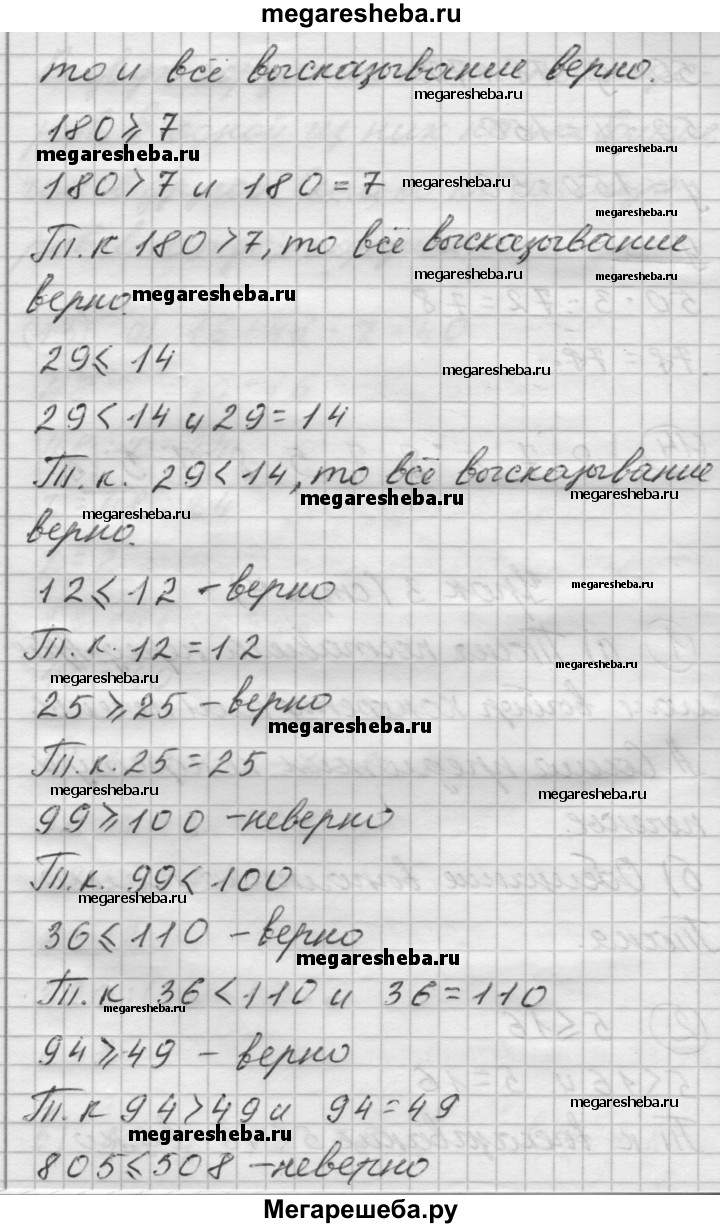 megaresheba.ru
то и всё высказывание верно.
megaresheba.ru
180⩾7
megaresheba.ru
megaresheba.ru
180>7 и 180=7
megaresheba.ru
megaresheba.ru
Т.к 180>7, то всё высказывание
megaresheba.ru
верно.
megaresheba.ru
29⩽14
megaresheba.ru
29<14 и 29=14
Т.к. 29<14, то всё высказывание
megaresheba.ru
megaresheba.ru
megaresheba.ru
верно.
12⩽12 - верно
megaresheba.ru
Т.к. 12=12
megaresheba.ru
megaresheba.ru
25⩾25 - верно
megaresheba.ru
Т.к. 25=25
megaresheba.ru
megaresheba.ru
99⩾100 - неверно
Т.к. 99<100
megaresheba.ru
36⩽110 - верно
megaresheba.ru
Т.к 36<110 и 36=110
megaresheba.ru
94⩾49 - верно
Т.к 94>49 и 94=49
megaresheba.ru
megaresheba.ru
805⩽508 - неверно
Мегарешеба.ру